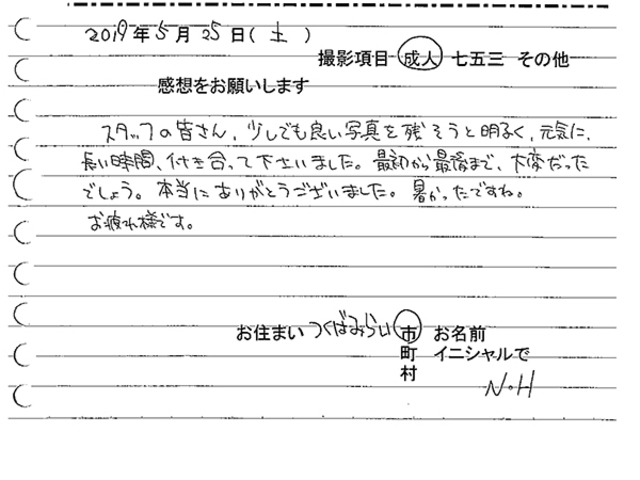 2019年5月25日(土)
撮影項目 成人 七五三 その他
感想をお願いします
スタッフの皆さん、少しでも良い写真を残そうと明るく、元気に、
長い時間、付き合って下さいました。最初から最後まで、大変だった
でしょう。本当にありがとうございました。暑かったですね。
お疲れ様です。
お住まい つくばみらい 市 お名前
町 イニシャルで
村 N.H